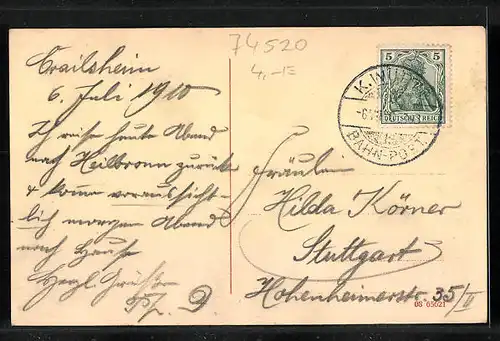 74520
4,-
Crailsheim
6. Juli 1910
Ich reise heute Abend
nach Heilbronn zurück
& komme voraussicht-
lich morgen Abend
nach Hause
Herzl. Grüße
5
5
DEUTSCHES REICH
K. WÜRTT.
BAHN-POST
Fräulein
Hilda Körner
Stuttgart
Hohenheimerstr. 35/II
05 65021